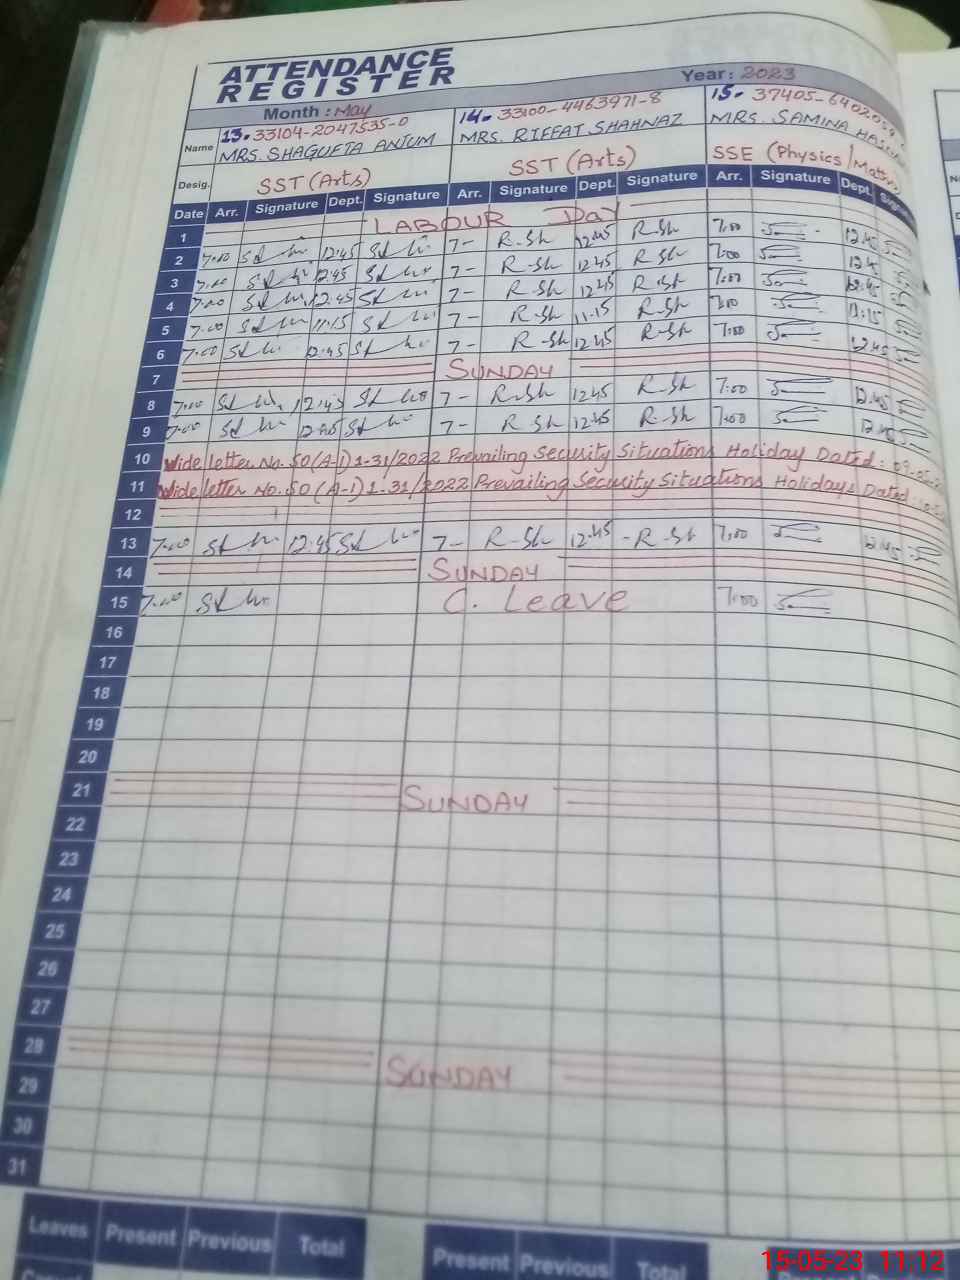 ATTENDANCE
REGISTER
Month : May Year : 2023
Name 13. 33104-2047535-0 14. 33100-4463971-8 15. 37405-640205
MRS. SHAGUFTA ANJUM MRS. RIFFAT SHAHNAZ MRS. SAMINA
Desig. SST (Arts) SST (Arts) SSE (Physics/
Date Arr. Signature Dept. Signature Arr. Signature Dept. Signature Arr. Signature Dept. Signature
1 LABOUR DAY
2 7:00 12:45 7- R-Sh 12:45 R-Sh 7:00 12:45
3 7:00 12:45 7- R-Sh 12:45 R-Sh 7:00 12:4
4 7:00 12:45 7- R-Sh 12:45 R-Sh 7:00 12:45
5 7:00 11:15 7- R-Sh 11:15 R-Sh 7:00 11:15
6 7:00 12:45 7- R-Sh 12:45 R-Sh 7:00 12:45
7 SUNDAY
8 7:00 12:45 7- R-Sh 12:45 R-Sh 7:00 12:45
9 7:00 12:45 7- R-Sh 12:45 R-Sh 7:00 12:45
10 Wide letter No. SO(A-I) 1-31/2022 Prevailing Security Situations Holiday Dated: 09-05
11 Wide letter No. SO(A-I) 1-31/2022 Prevailing Security Situations Holidays Dated:
12
13 7:00 12:45 7- R-Sh 12:45 R-Sh 7:00 12:45
14 SUNDAY
15 7:00 C. Leave 7:00
16
17
18
19
20
21 SUNDAY
22
23
24
25
26
27
28 SUNDAY
29
30
31
Leaves Present Previous Total Present Previous Total
15-05-23 11:12